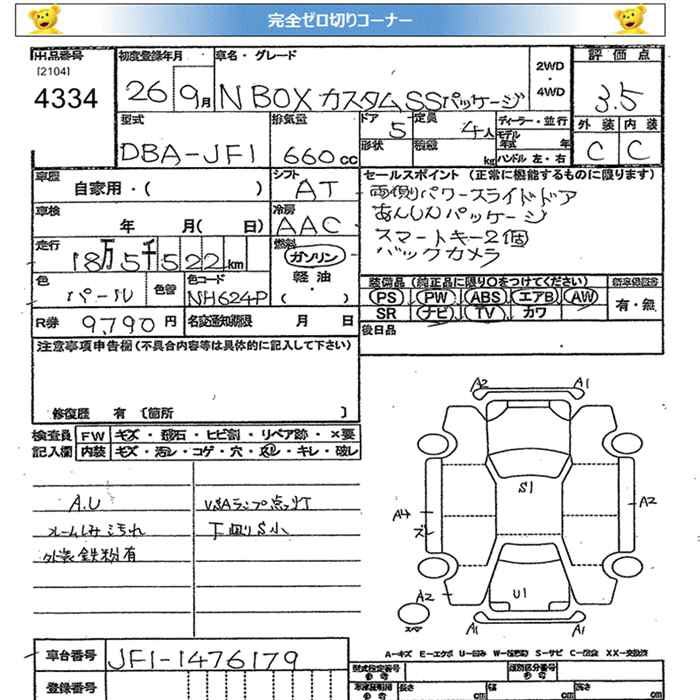 完全ゼロ切りコーナー
出品番号
[2104]
4334
初度登録年月
26 9月
車名・グレード
N BOX カスタムSSパッケージ
2WD
・
4WD
評価点
3.5
外装 内装
C C
型式
DBA-JF1
排気量
660cc
ドア
5
定員
4人
形状
積載
kg
ディーラー・並行
モデル
年式 年
ハンドル 左・右
車歴
自家用・( )
シフト
AT
セールスポイント (正常に機能するものに限ります)
両側パワースライドドア
あんしんパッケージ
スマートキー2個
バックカメラ
車検
年 月( 日)
冷房
AAC
走行
18万5千522km
燃料
ガソリン
軽油
( ・ )
色
パール
色替
色コード
NH624P
装備品 (純正品に限り○をつけてください)
PS PW ABS エアB AW
SR ナビ TV カワ
新車保証書
有・無
R券 9,790円
名変通知期限 月 日
後日品
注意事項申告欄(不具合内容等は具体的に記入して下さい)
修復歴 有 [箇所 ]
検査員
記入欄
FW キズ・飛石・ヒビ割・リペア跡・×要
内装 キズ・汚レ・コゲ・穴・・キレ・破レ
A.U
ルームしみ汚れ
外装鉄粉有
VSAランプ点灯
下廻りS小
A2 A1
S1
A4
ズレ
A2
U1
A2
A1 A1
スペア
A-キズ E-エクボ U-凹み W- S-サビ C-腐食 XX-交換済
車台番号
JF1-1476179
登録番号
型式指定番号
参考
類別区分番号
参考
車庫証明用
参考
長さ cm
幅 cm
高さ cm